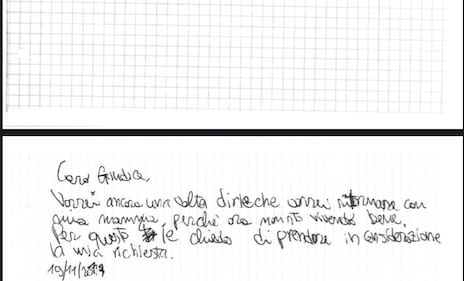 Caro Giudice,
Vorrei ancora una volta dirle che vorrei ritornare con
mia mamma, perché ora non sto vivendo bene.
Per questo le chiedo di prendere in considerazione
la mia richiesta.
19/11/